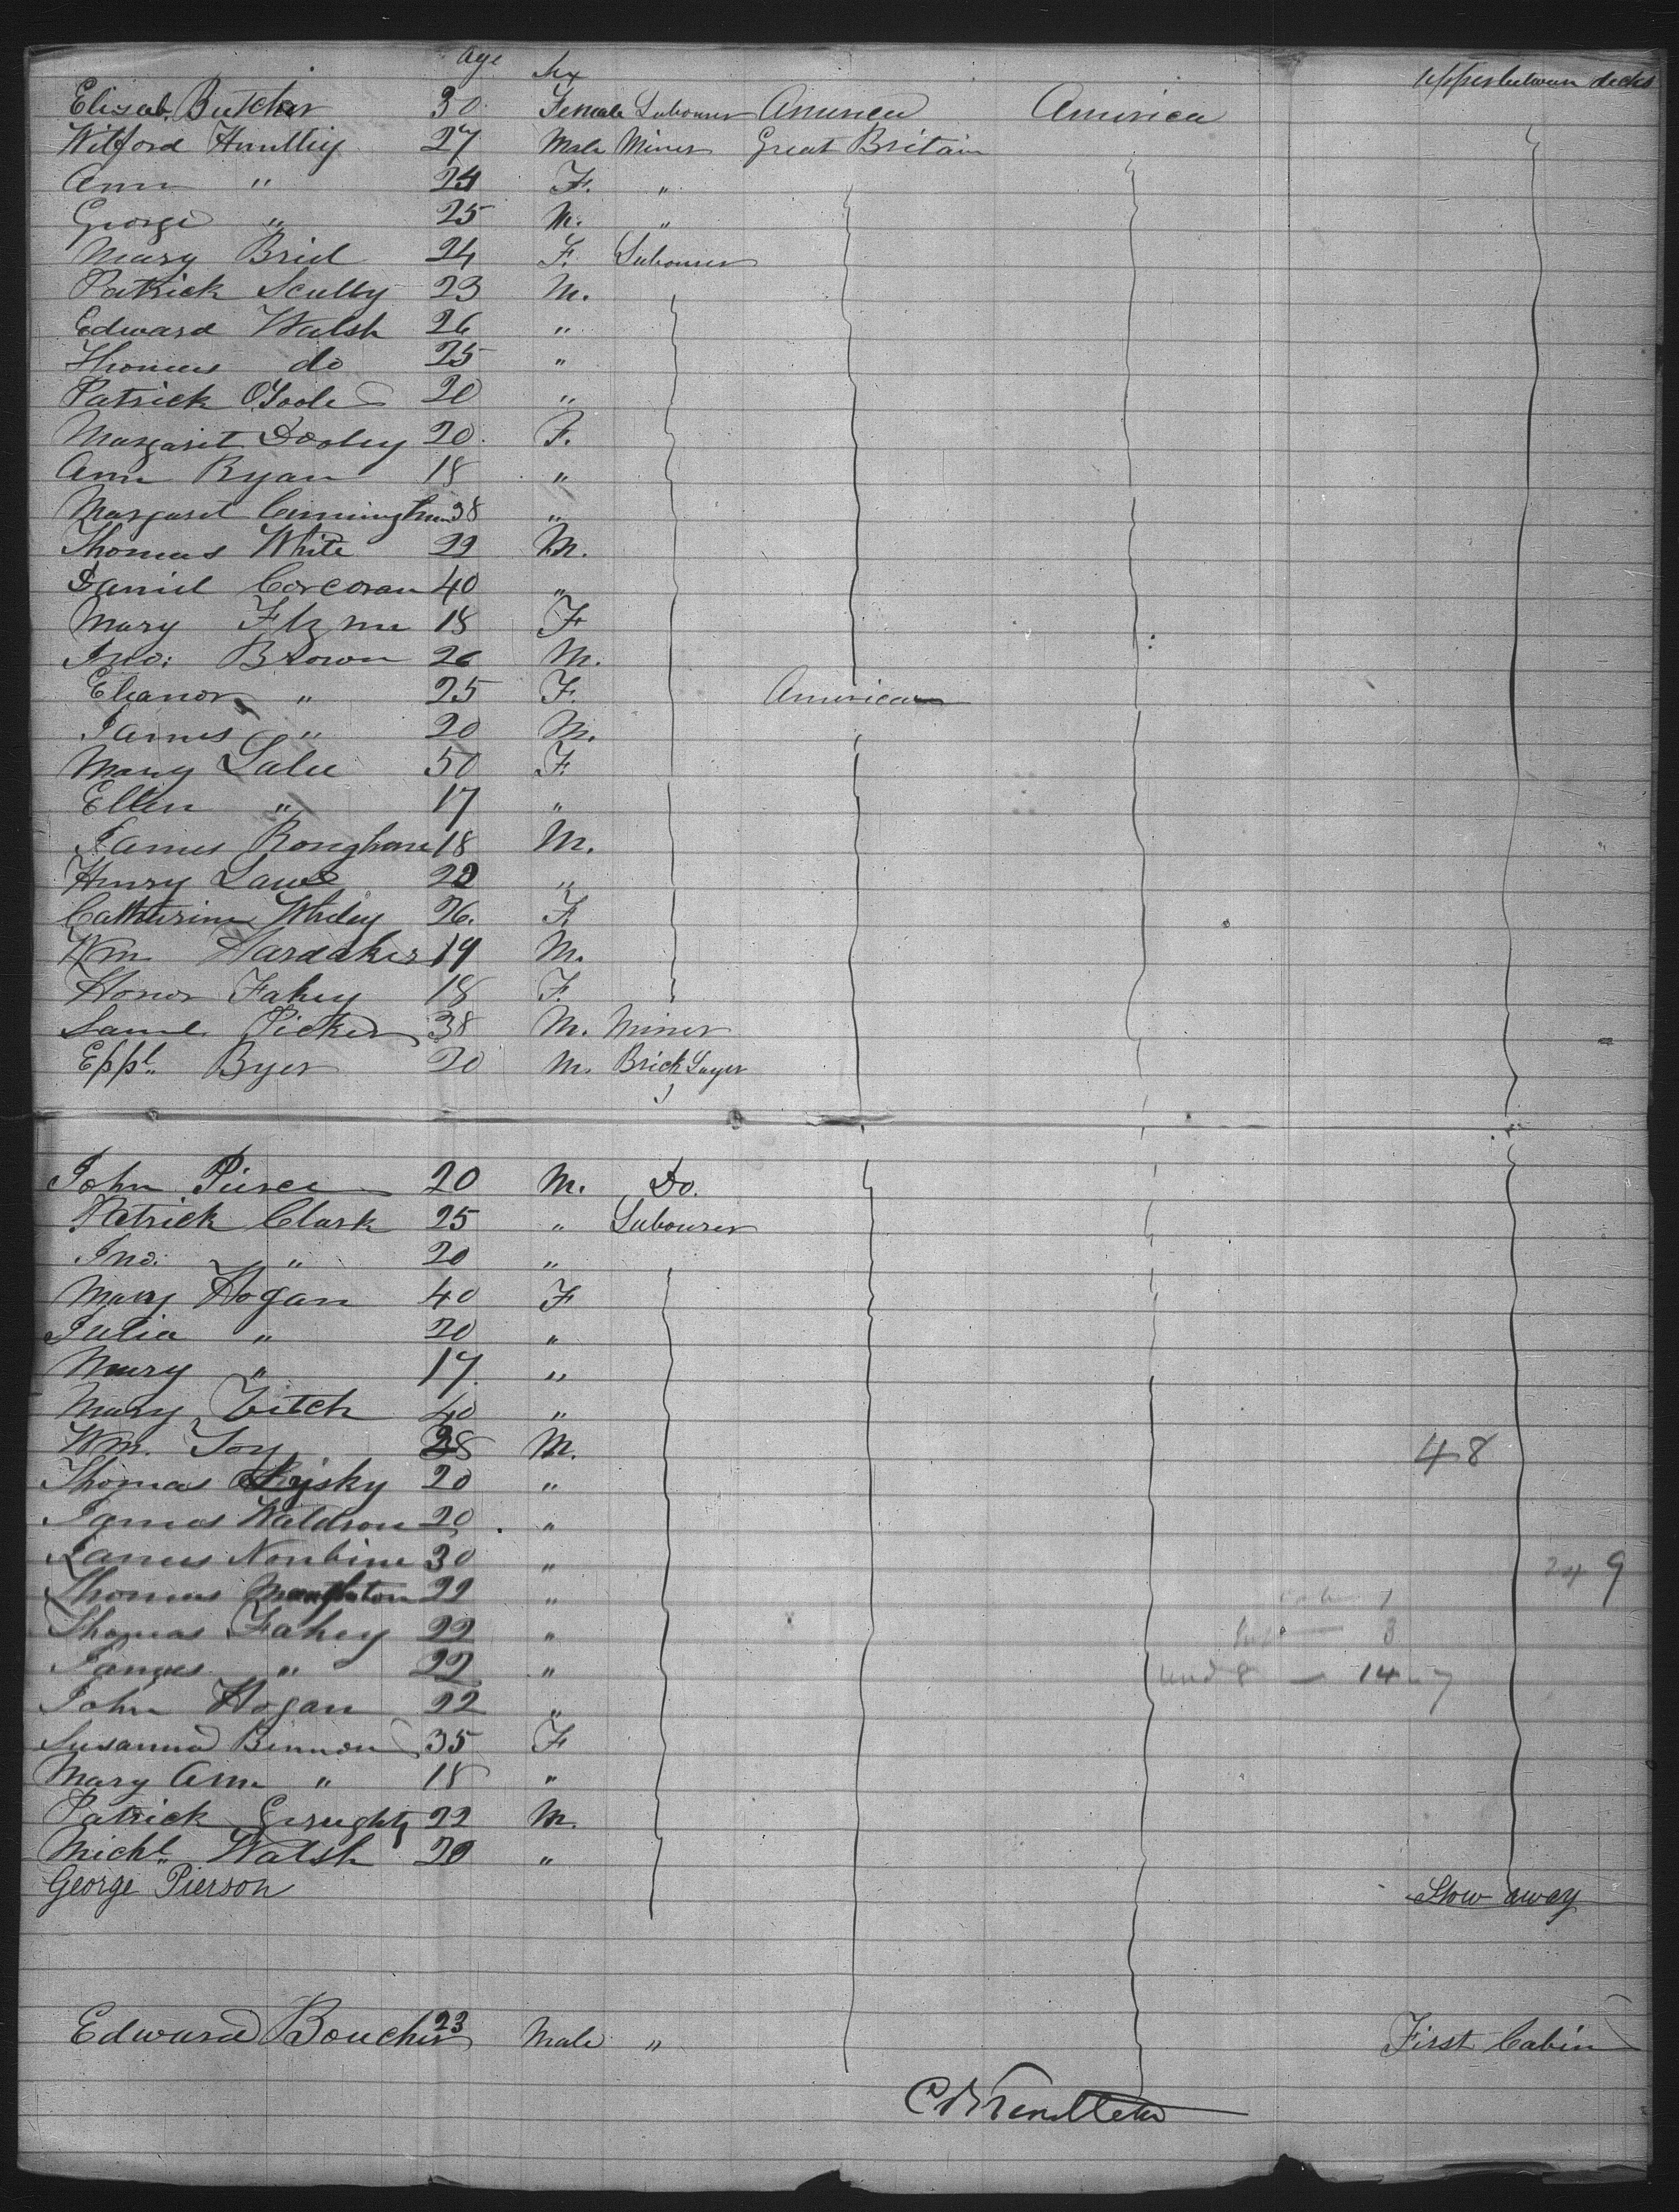 Age Sex Upper between decks
Elizab. Butcher 30 Female Labourer America America
Wilford Huntley 27 Male Miner Great Britain
Ann " 24 F. "
George " 25 M. "
Mary Brid 24 F. Labourer
Patrick Scully 23 M.
Edward Walsh 26 "
Thomas do 25 "
Patrick O'Toole 20 "
Margaret Dooley 20 F.
Ann Ryan 18 "
Margaret Cunningham 38 "
Thomas White 22 M.
Daniel Corcoran 40 "
Mary 18 F
Jno: Brown 26 M.
Eleanor " 25 F. American
James " 20 M.
Mary Lalu 50 F.
Ellen " 17 "
James 18 M.
Henry Laws 22 "
Catherine Whiley 26. F.
Wm. Hardaker 19 M.
Honor Fahey 18 F.
Saml. Picker 38 M. Miner
Eppl. Byer 20 M. Brick Layer
John Pierce 20 M. Do.
Patrick Clark 25 " Labourer
Jno: " 20 "
Mary Hogan 40 F
Julia " 20 "
Mary " 17. "
Mary Titch 40 "
Wm. Joy 28 M. 48
Thomas 20 "
James Waldron 20 "
James 30 " 9
Thomas 22 "
Thomas Fahey 22 " 8
James " 22 " und 8 — 14
John Hogan 22 "
Susanna Binnon 35 F
Mary Ann " 18 "
Patrick Geraghty 22 M.
Michl. Walsh 20 "
George Pierson Stow away
Edward Boucher 23 Male " First Cabin